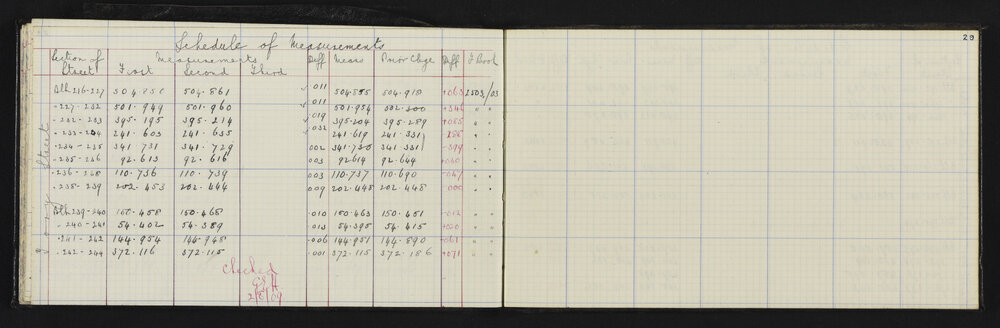 29
Schedule of Measurements
Section of Street Measurements Diff Means Prior Chge Diff F Book
First Second Third
Alh 226-227 504.850 504.861 ✓.011 504.855 504.918 +063 2503/03
" 227-232 501.949 501.960 ✓.011 501.954 502.300 +346 " "
" 232-233 395.195 395.214 ✓.019 395.204 395.289 +085 " "
" 233-234 241.603 241.635 ✓.032 241.619 241.331 " "
" 234-235 341.731 341.729 002 341.730 341.331 -399 " "
" 235-236 92.613 92.616 003 92.614 92.644 +030 " "
" 236-238 110.736 110.739 003 110.737 110.690 -047 " "
" 238-239 202.453 202.444 009 202.448 202.448 000 " "
Alh 239-240 150.458 150.468 .010 150.463 150.451 -012 " "
" 240-241 54.402 54.389 .013 54.395 54.415 +020 " "
" 241-242 144.954 144.948 .006 144.951 144.890 -061 " "
" 242-244 372.116 372.115 .001 372.115 372.186 +071 " "
Street
checked
2/8/09